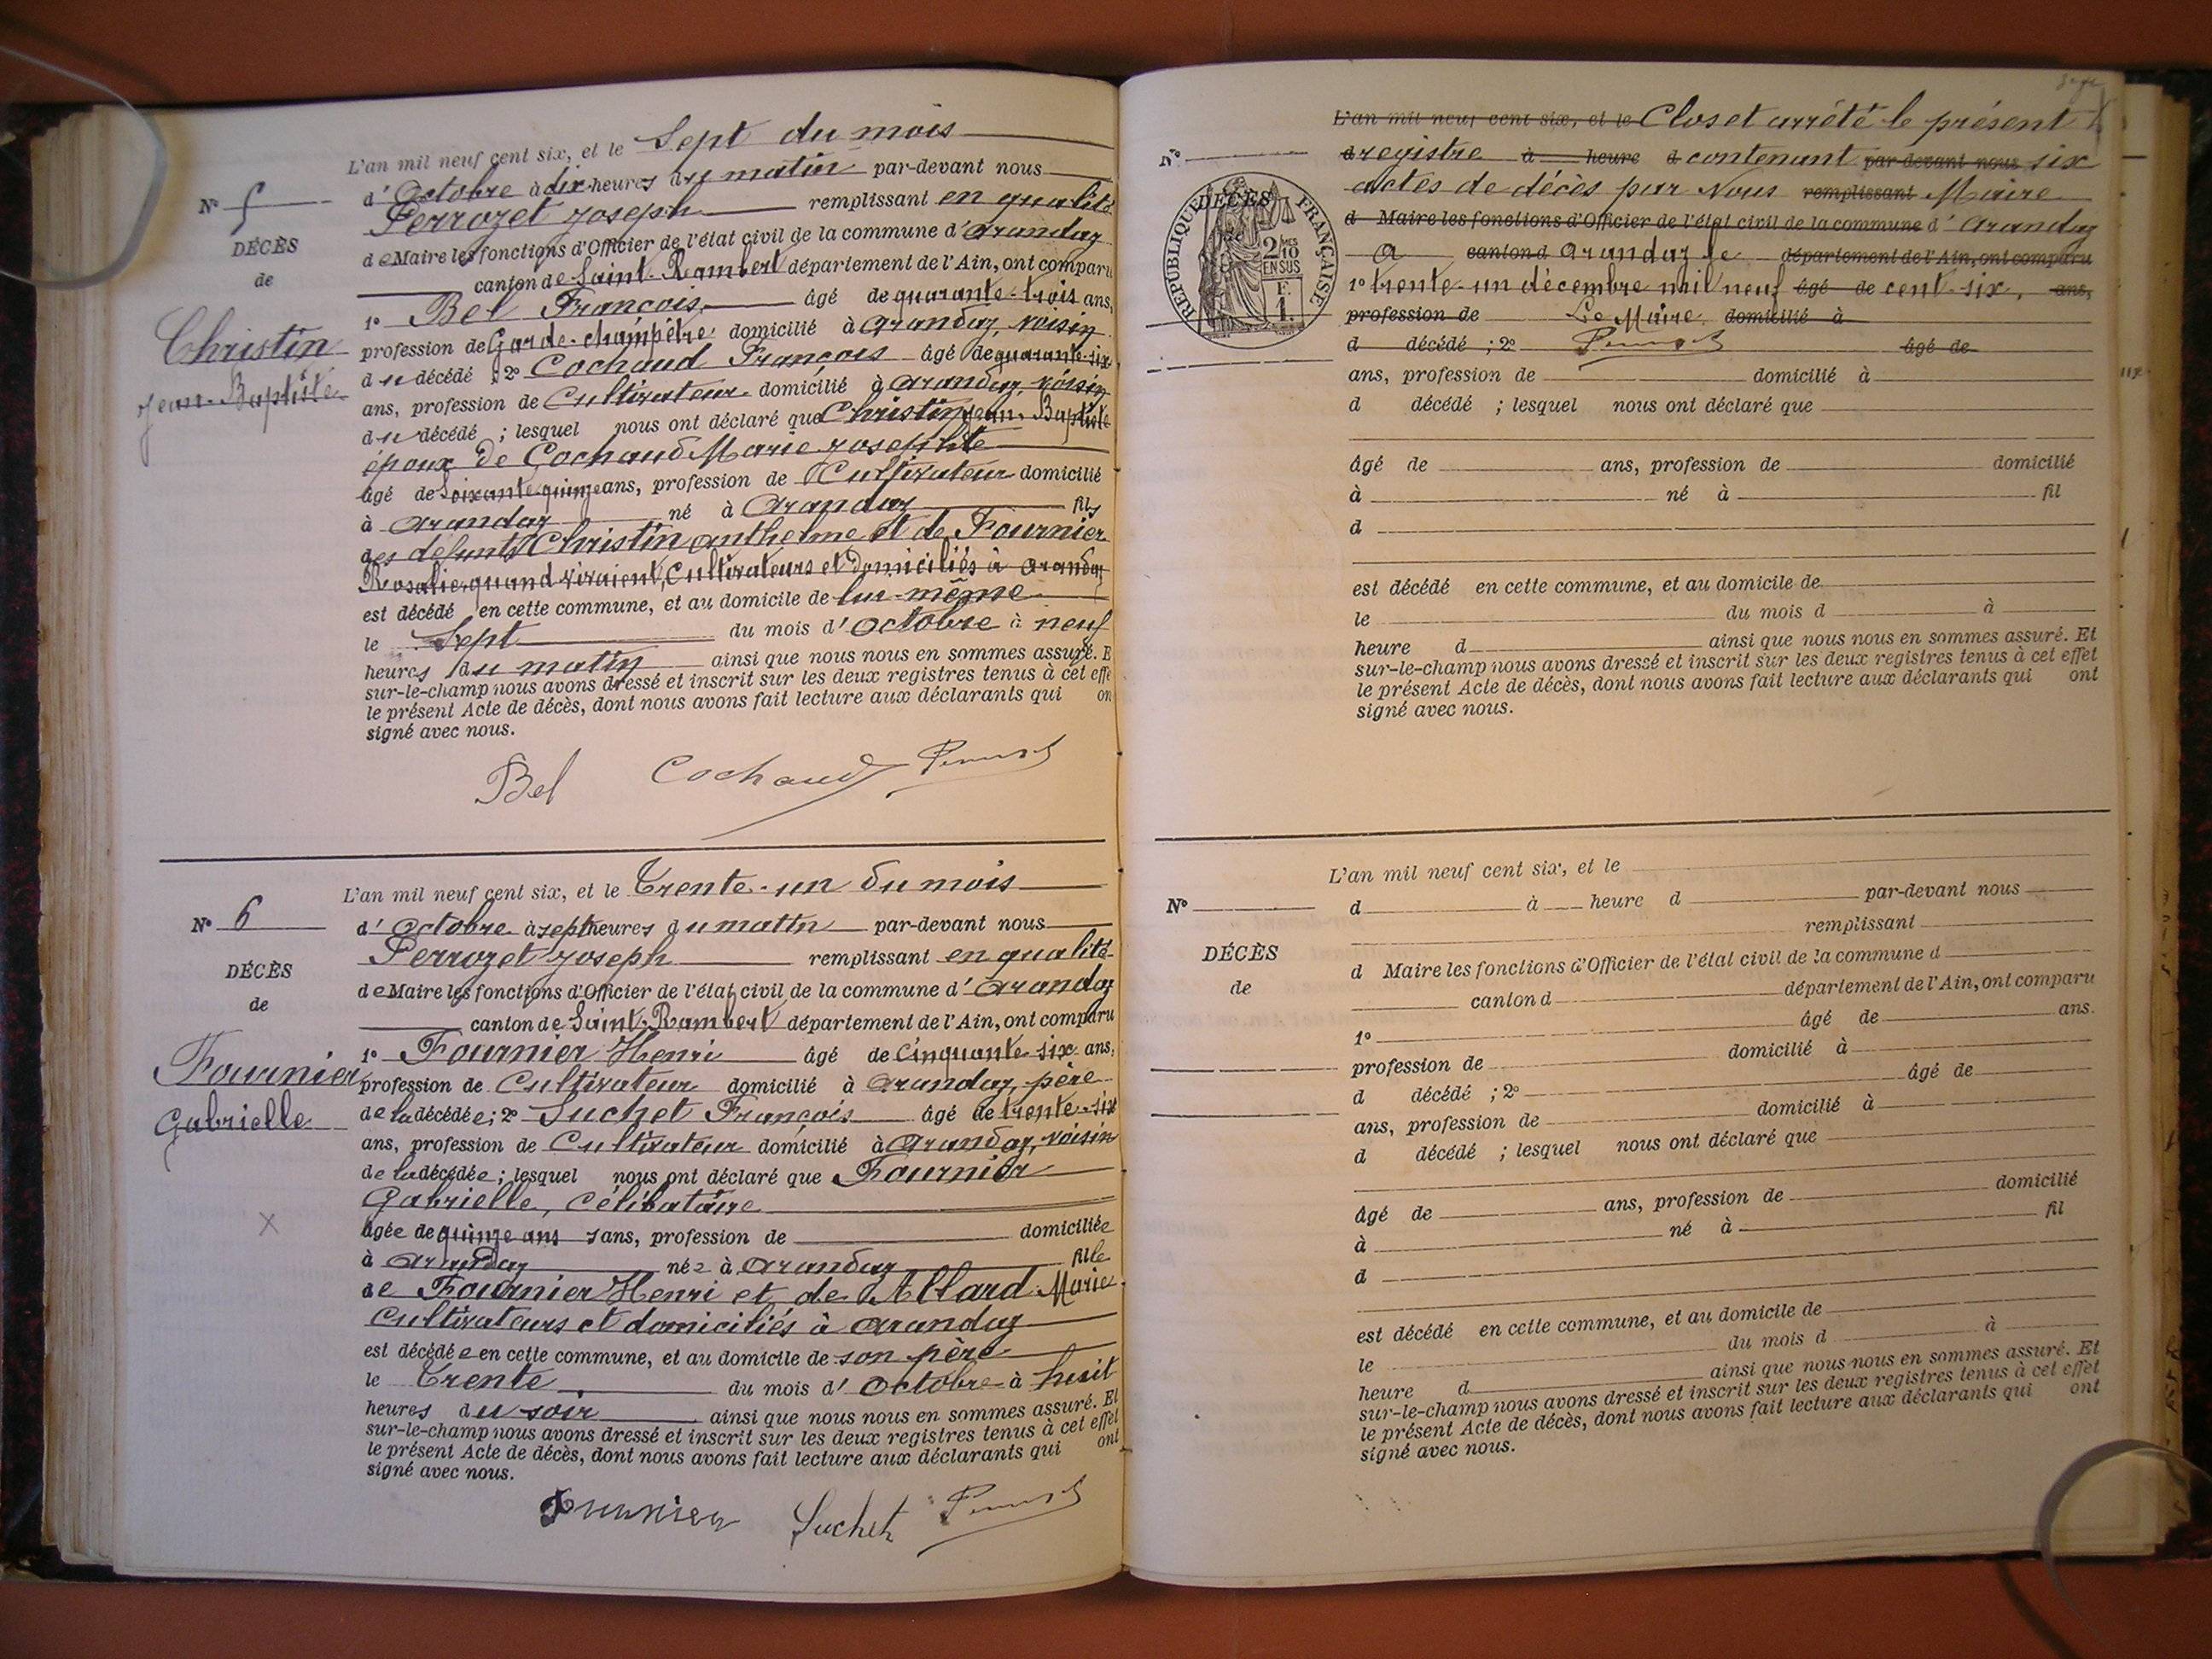 L'an mil neuf cent six, et le Sept du mois
d'Octobre à dix heures du matin par-devant nous
Perrozet Joseph remplissant en qualité
de Maire les fonctions d'Officier de l'état civil de la commune d'Arandaz
canton de Saint-Rambert département de l'Ain, ont comparu
1° Bel François, âgé de quarante-trois ans,
profession de Garde-champêtre domicilié à Arandaz, voisin
du décédé ; 2° Cochaud François âgé de quarante-six
ans, profession de Cultivateur domicilié à Arandaz, voisin
du décédé ; lesquel nous ont déclaré que Christin Jean-Baptiste
époux de Cochaud Marie Josephte
âgé de Soixante-quinze ans, profession de Cultivateur domicilié
à Arandaz né à Arandaz fils
des défunts Christin Anthelme et de Fournier
Rosalie, quand vivaient, Cultivateurs et Domiciliés à Arandaz
est décédé en cette commune, et au domicile de lui-même
le Sept du mois d'Octobre à neuf
heures du matin ainsi que nous nous en sommes assuré. E
sur-le-champ nous avons dressé et inscrit sur les deux registres tenus à cet effe
le présent Acte de décès, dont nous avons fait lecture aux déclarants qui on
signé avec nous.
Bel Cochaud
N° 5
DÉCÈS
de
Christin
Jean-Baptiste
L'an mil neuf cent six, et le Trente-un du mois
d'Octobre à sept heures du matin par-devant nous
Perrozet Joseph remplissant en qualité
de Maire les fonctions d'Officier de l'état civil de la commune d'Arandaz
canton de Saint-Rambert département de l'Ain, ont comparu
1° Fournier Henri âgé de Cinquante-six ans,
profession de Cultivateur domicilié à Arandaz, père
de la décédée; 2° Suchet François âgé de trente-six
ans, profession de Cultivateur domicilié à Arandaz, voisin
de la décédée; lesquel nous ont déclaré que Fournier
Gabrielle, Célibataire
âgée de quinze ans sans, profession de domiciliée
à Arandaz née à Arandaz fille
de Fournier Henri et de Allard Marie
Cultivateurs et domiciliés à Arandaz
est décédée en cette commune, et au domicile de son père
le Trente du mois d'Octobre à huit
heures du soir ainsi que nous nous en sommes assuré. Et
sur-le-champ nous avons dressé et inscrit sur les deux registres tenus à cet effet
le présent Acte de décès, dont nous avons fait lecture aux déclarants qui ont
signé avec nous.
Fournier Suchet
N° 6
DÉCÈS
de
Fournier
Gabrielle
X
L'an mil neuf cent six, et le Clos et arrêté le présent
d registre à heure d contenant par-devant nous six
actes de décès par Nous remplissant Maire
d Maire les fonctions d'Officier de l'état civil de la commune d'Arandaz
A canton d Arandaz le département de l'Ain, ont comparu
1° trente-un décembre mil neuf âgé de cent-six, ans,
profession de Le Maire domicilié à
d décédé ; 2° âgé de
ans, profession de domicilié à
d décédé ; lesquel nous ont déclaré que
âgé de ans, profession de domicilié
à né à fil
d
est décédé en cette commune, et au domicile de
le du mois d à
heure d ainsi que nous nous en sommes assuré. Et
sur-le-champ nous avons dressé et inscrit sur les deux registres tenus à cet effet
le présent Acte de décès, dont nous avons fait lecture aux déclarants qui ont
signé avec nous.
N°
DÉCÈS
RÉPUBLIQUE FRANÇAISE
2 MES
10
EN SUS
F.
1.
L'an mil neuf cent six, et le
d à heure d par-devant nous
remplissant
d Maire les fonctions d'Officier de l'état civil de la commune d
canton d département de l'Ain, ont comparu
1° âgé de ans.
profession de domicilié à
d décédé ; 2° âgé de
ans, profession de domicilié à
d décédé ; lesquel nous ont déclaré que
âgé de ans, profession de domicilié
à né à fil
d
est décédé en cette commune, et au domicile de
le du mois d à
heure d ainsi que nous nous en sommes assuré. Et
sur-le-champ nous avons dressé et inscrit sur les deux registres tenus à cet effet
le présent Acte de décès, dont nous avons fait lecture aux déclarants qui ont
signé avec nous.
N°
DÉCÈS
de